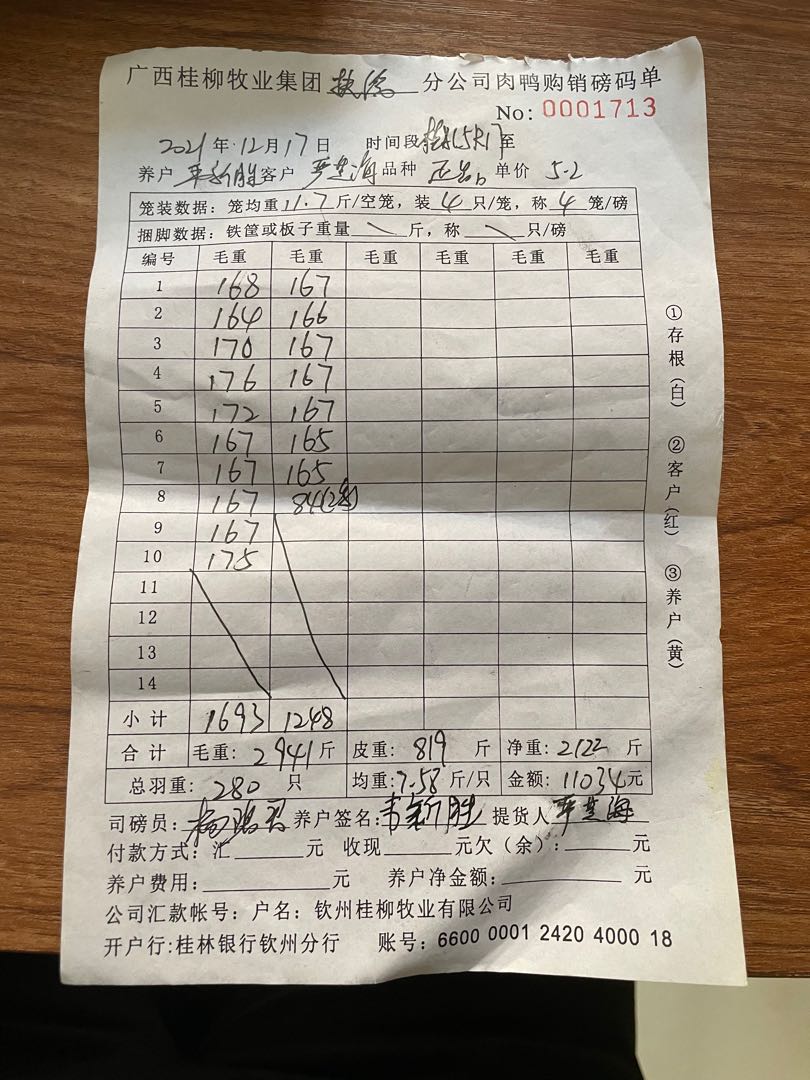 广西桂柳牧业集团 分公司肉鸭购销磅码单
No: 0001713
2021年12月17日 时间段 至
养户 韦新胜 客户 严芝海 品种 单价 5.2
笼装数据: 笼均重11.7斤/空笼, 装4只/笼, 称4笼/磅
捆脚数据: 铁筐或板子重量 \ 斤, 称 \ 只/磅
编号 毛重 毛重 毛重 毛重 毛重 毛重
1 168 167
2 164 166
3 170 167
4 176 167
5 172 167
6 167 165
7 167 165
8 167 84(2笼)
9 167
10 175
11
12
13
14
小计 1693 1248
合计 毛重: 2941斤 皮重: 819斤 净重: 2122斤
总羽重: 280只 均重: 7.58斤/只 金额: 11034元
司磅员: 养户签名: 韦新胜 提货人 严芝海
付款方式: 汇 元 收现 元欠(余): 元
养户费用: 元 养户净金额: 元
公司汇款帐号: 户名: 钦州桂柳牧业有限公司
开户行:桂林银行钦州分行 账号: 6600 0001 2420 4000 18
①存根(白) ②客户(红) ③养户(黄)